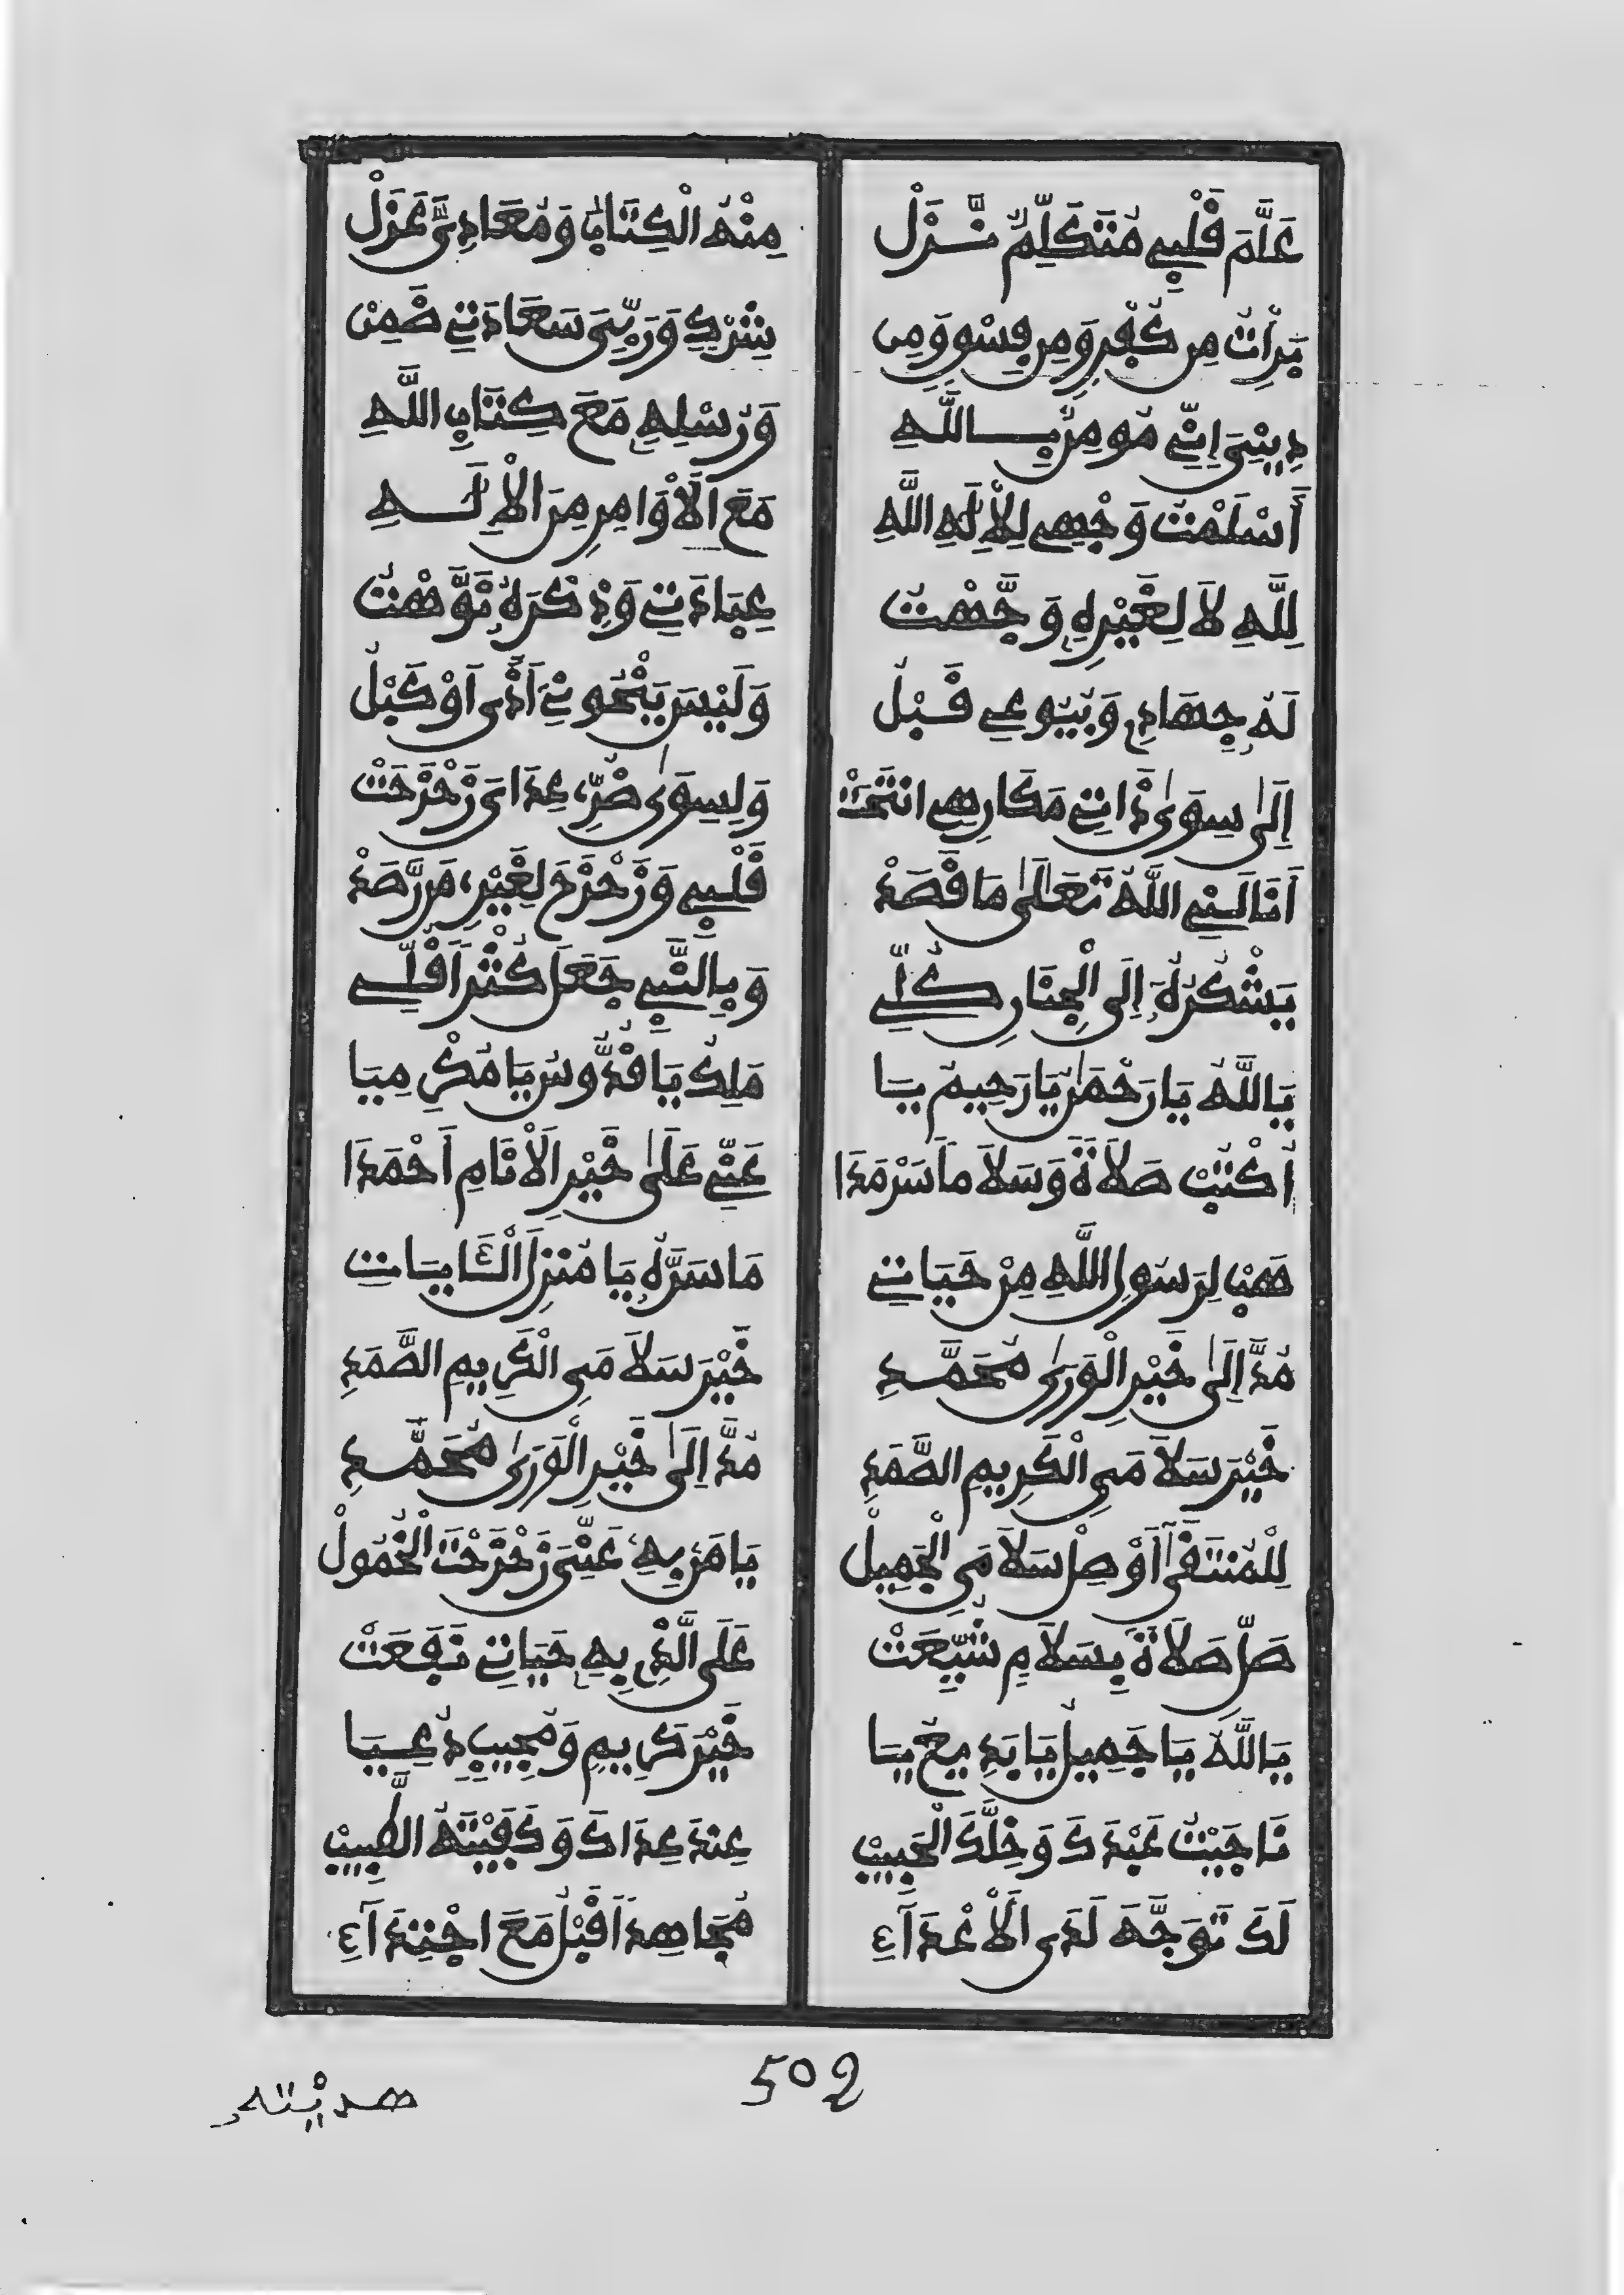 عَلَّمَ قَلْبِي مُتَكَلِّمٌ نَّزَلْ مِنْهُ الْكِتَابُ وَمُعَادِيَّ عَزَلْ
بَرَأْتُ مِن كُفْرٍ وَمِن فِسْقٍ وَمِن شِرْكٍ وَرَبِّيَ سَعَادَتِي ضَمِنْ
دِينِيَ إِنِّي مُومِنٌ بِاللَّهِ وَرُسْلِهِ مَعَ كِتَابِ اللَّهِ
أَسْلَمْتُ وَجْهِي لِلْإِلَٰهِ اللَّهِ مَعَ الْأَوَامِرِ مِنَ الْإِلَٰهِ
لِلَّهِ لَا لِغَيْرِهِ وَجَّهْتُ عِبَادَتِي وَذِكْرَهُ نَوَّهْتُ
لَهُ جِهَادِي وَبُيُوعِي قَبْلُ وَلَيْسَ يَنْحُونِيَ أَذًى أَوْ كَبْلُ
إِلَىٰ سِوَىٰ ذَاتِي مَكَارِهِي انْتَحَتْ وَلِسِوَىٰ ضُرِّي عِدَايَ زَحْزَحَتْ
أَنَالَنِي اللَّهُ تَعَالَىٰ مَا قَصَدْ قَلْبِي وَزَحْزَحَ لِغَيْرِي مَن رَّصَدْ
يَشْكُرُهُ إِلَى الْجِنَانِ كُلِّي وَبِالنَّبِي جَعَلَ كُثْرًا قُلِّي
يَا اللَّهُ يَا رَحْمَٰنُ يَا رَحِيمُ يَا مَلِكُ يَا قُدُّوسُ يَا مُكْرِمِيَا
أُكْتُبْ صَلَاةً وَسَلَامًا سَرْمَدَا عَنِّي عَلَىٰ خَيْرِ الْأَنَامِ أَحْمَدَا
هَبْ لِرَسُولِ اللَّهِ مِنْ حَيَاتِي مَا سَرَّهُ يَا مُنْزِلَ الْآيَاتِ
مُدَّ إِلَىٰ خَيْرِ الْوَرَىٰ مُحَمَّدِ خَيْرَ سَلَامَيِ الْكَرِيمِ الصَّمَدِ
خَيْرَ سَلَامَيِ الْكَرِيمِ الصَّمَدِ مُدَّ إِلَىٰ خَيْرِ الْوَرَىٰ مُحَمَّدِ
لِلْمُنْتَقَىٰ أَوْصِلْ سَلَامَيِ الْجَمِيلْ يَا مَنْ بِهِ عَنِّيَ زَحْزَحْتَ الْخُمُولْ
صَلِّ صَلَاةً بِسَلَامٍ شُيِّعَتْ عَلَى الَّذِي بِهِ حَيَاتِي نَفَعَتْ
يَا اللَّهُ يَا جَمِيلُ يَا بَدِيعُ يَا خَيْرَ كَرِيمٍ وَمُجِيبِ دُعِيَا
نَاجَيْتُ عَبْدَكَ وَخِلَّكَ الْحَبِيبْ عِنْدَ عِدَاكَ وَكَفَيْتَهُ الطَّبِيبْ
لَكَ تَوَجَّهَ لَدَى الْأَعْدَآءِ مُجَاهِدًا قَبْلُ مَعَ اجْتِدَآءِ
502
هديته